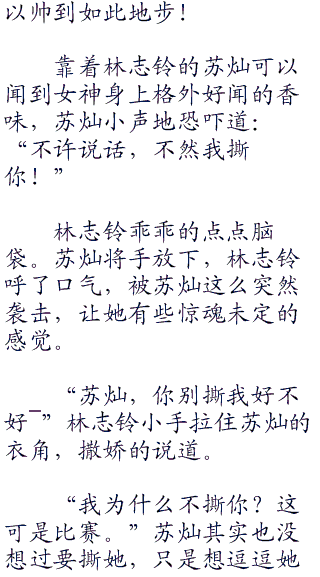 以帅到如此地步！
靠着林志铃的苏灿可以
闻到女神身上格外好闻的香
味，苏灿小声地恐吓道：
“不许说话，不然我撕
你！”
林志铃乖乖的点点脑
袋。苏灿将手放下，林志铃
呼了口气，被苏灿这么突然
袭击，让她有些惊魂未定的
感觉。
“苏灿，你别撕我好不
好~”林志铃小手拉住苏灿的
衣角，撒娇的说道。
“我为什么不撕你？这
可是比赛。”苏灿其实也没
想过要撕她，只是想逗逗她